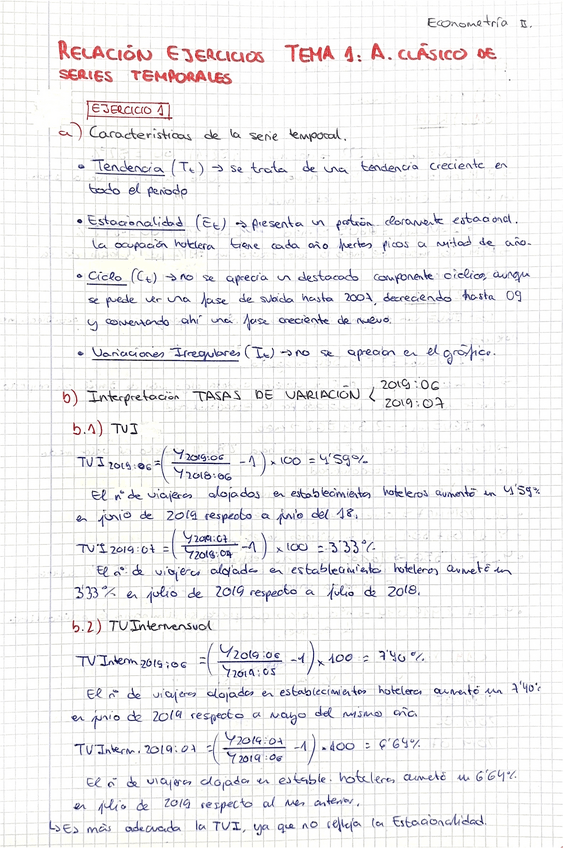 Econometría II.
RELACIÓN EJERCICIOS TEMA 1: A. CLÁSICO DE
SERIES TEMPORALES
EJERCICIO 1
a) Características de la serie temporal.
• Tendencia (Tt) → se trata de una tendencia creciente en
todo el periodo
• Estacionalidad (Et) → presenta un patrón claramente estacional.
La ocupación hotelera tiene cada año fuertes picos a mitad de año.
• Ciclo (Ct) → no se aprecia un destacado componente cíclico, aunque
se puede ver una fase de subida hasta 2007, decreciendo hasta 09
y comenzando ahí una fase creciente de nuevo.
• Variaciones Irregulares (It) → no se aprecian en el gráfico.
b) Interpretación TASAS DE VARIACIÓN < 2019:06
2019:07
b.1) TVI
TVI 2019:06 = (Y2019:06 / Y2018:06 - 1) × 100 = 4'59%
El nº de viajeros alojados en establecimientos hoteleros aumentó un 4'59%
en junio de 2019 respecto a junio del 18.
TVI 2019:07 = (Y2019:07 / Y2018:07 - 1) × 100 = 3'33%
El nº de viajeros alojados en establecimiento hoteleros aumetó un
3'33% en julio de 2019 respecto a julio de 2018.
b.2) TVIntermensual
TVInterm 2019:06 = (Y2019:06 / Y2019:05 - 1) × 100 = 7'40%
El nº de viajeros alojados en establecimientos hoteleros aumentó un 7'40%
en junio de 2019 respecto a mayo del mismo año.
TVInterm. 2019:07 = (Y2019:07 / Y2019:06 - 1) × 100 = 6'64%
El nº de viajeros alojados en estable. hoteleros aumetó un 6'64%
en julio de 2019 respecto al mes anterior.
↳ Es más adecuada la TVI, ya que no refleja la Estacionalidad.